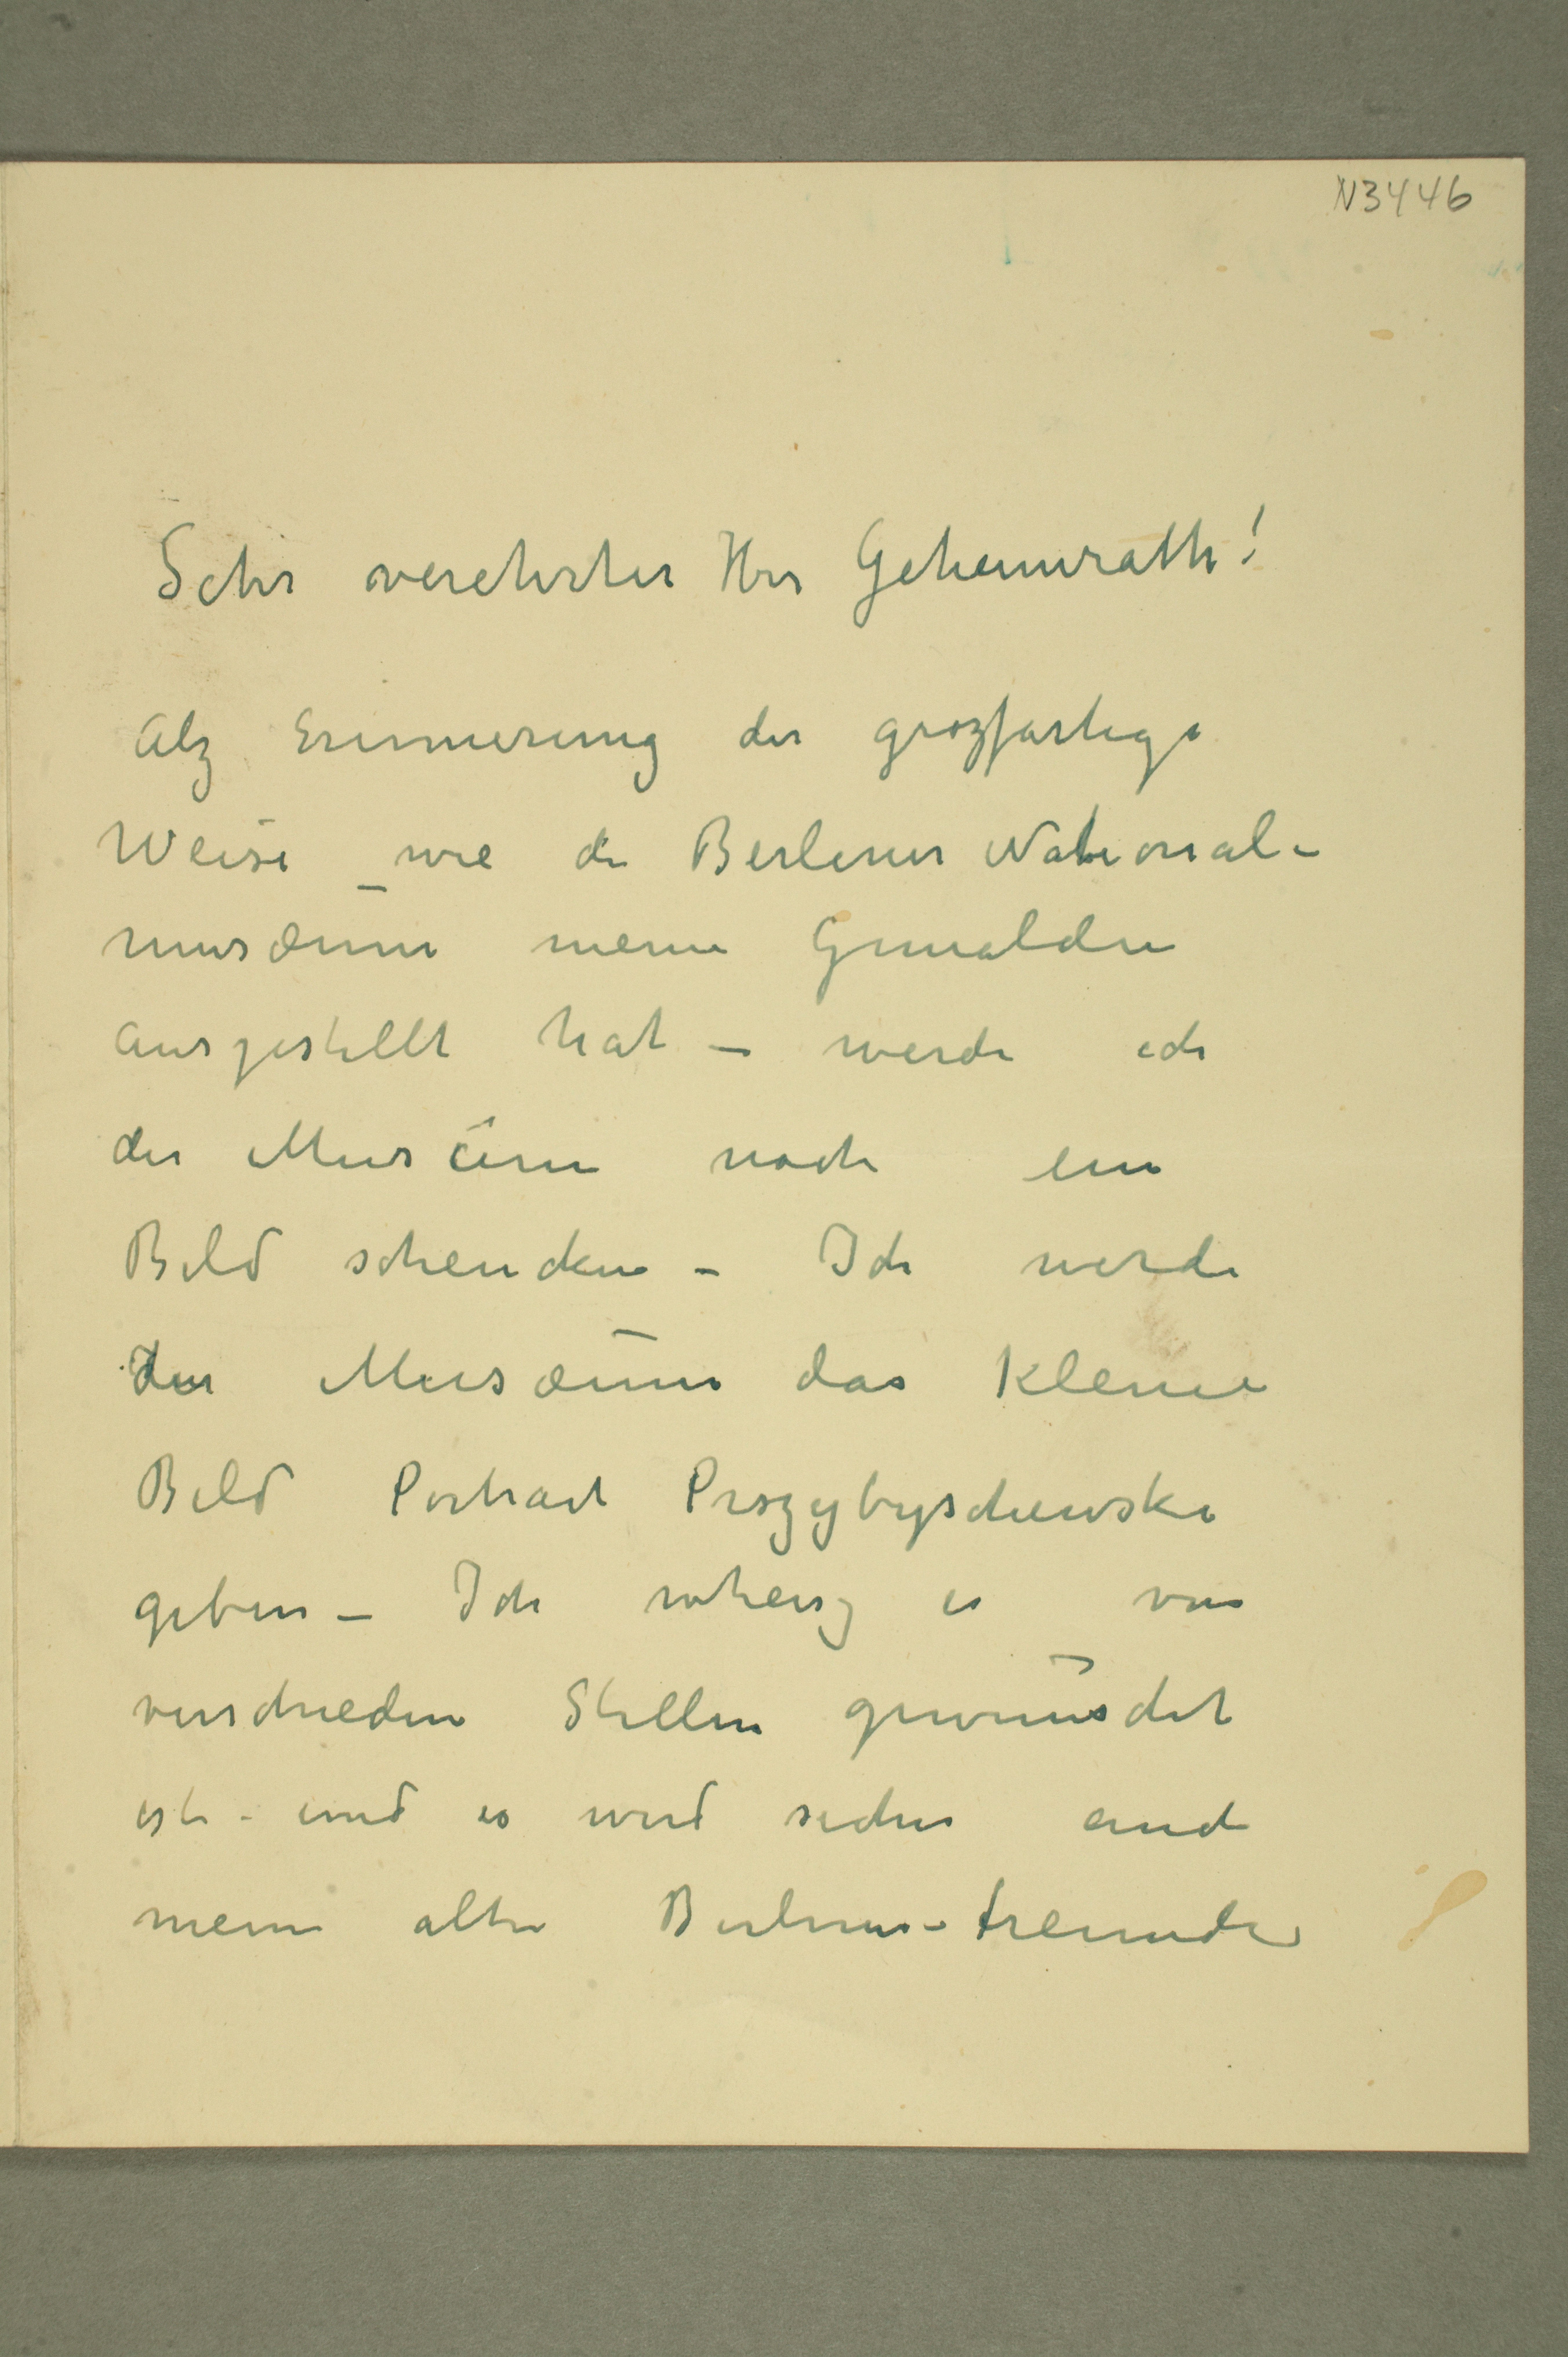 N3446
Sehr verehrter Herr Geheimrath!
Alz Erinnerung der grozfartige
Weise wie die Berliner National-
musæum meine Gemälden
ausgestellt hat – werde ich
der Musæum noch ein
Bild schenken – Ich werde
der Musæum das kleine
Bild Portrait Prszybyschewski
geben – Ich wheisz es von
verschieden Stellen gewünscht
ist – und es wird sicher auch
meine alte Berliner-freunde